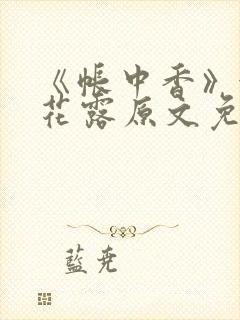 《帐中香》
花露原文免
蓝尧